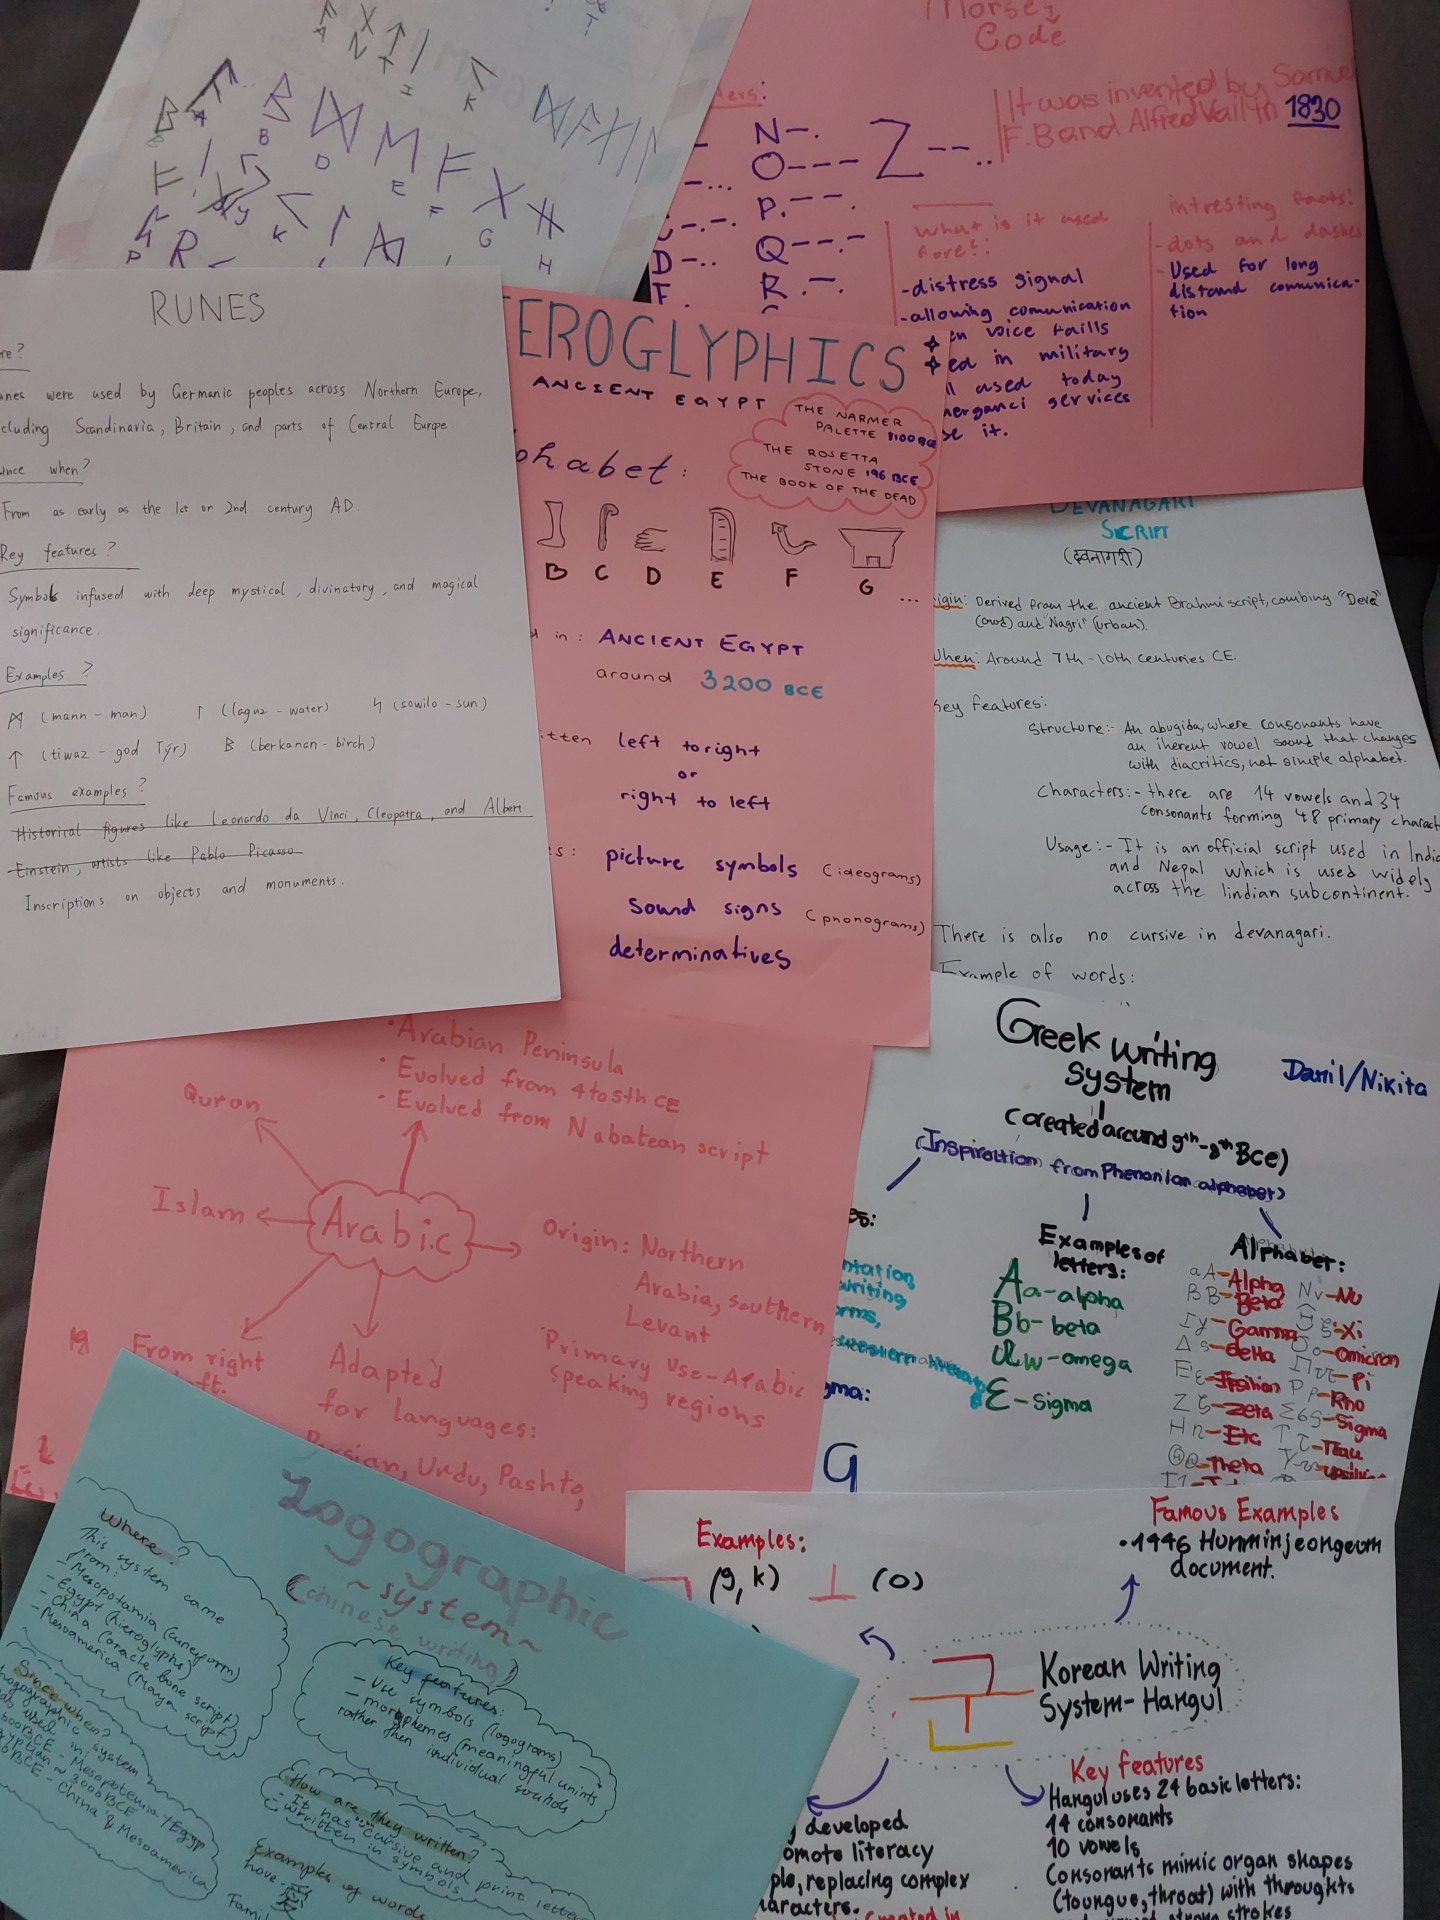 A
N
T
I
K
B
A
B
D
M
E
F
F
X
G
H
H
Y
K
P
R
Morse
Code
It was invented by Samue
F. B and Alfred Vail in 1830
N-.
O---
P.---.
Q---.-
R.-.
Z--..
D-..
F.
What is it used
fore?:
-distress signal
-allowing comunication
en voice faills
ed in military
used today
merganci services
se it.
intresting facts:
-dots and dashes
-Used for long
distand comunica-
tion
RUNES
re?
unes were used by Germanic peoples across Northern Europe,
cluding Scandinavia, Britain, and parts of Central Europe.
ince when?
From as early as the 1st or 2nd century AD.
Key features?
Symbols infused with deep mystical, divinatory, and magical
significance.
Examples?
ᛗ (mann - man) ᛚ (laguz - water) ᛋ (sowilo - sun)
↑ (tiwaz - god Týr) B (berkanan - birch)
Famous examples?
Historical figures like Leonardo da Vinci, Cleopatra, and Albert
Einstein, artists like Pablo Picasso.
Inscriptions on objects and monuments.
EROGLYPHICS
ANCIENT EGYPT
THE NARMER
PALETTE 3100 BCE
THE ROSETTA
STONE 196 BCE
THE BOOK OF THE DEAD
phabet:
B C D E F G ...
d in: ANCIENT EGYPT
around 3200 BCE
itten left to right
or
right to left
es: picture symbols (ideograms)
sound signs (phonograms)
determinatives
DEVANAGARI
SCRIPT
(दवनागरी)
igin: Derived from the ancient Brahmi script, combing "Deva"
(God) and "Nagri" (urban).
When: Around 7th-10th centuries CE.
Key Features:
Structure:- An abugida, where consonants have
an iherent vowel sound that changes
with diacritics, not simple alphabet.
Characters:- there are 14 vowels and 34
consonants forming 48 primary charact
Usage:- It is an official script used in India
and Nepal which is used widely
across the Iindian subcontinent.
There is also no cursive in devanagari.
Example of words:
Arabic
Quran
Islam
• Arabian Peninsula
• Evolved from 4 to 5th CE
• Evolved from Nabatean script
Origin: Northern
Arabia, southern
Levant
Primary use-Arabic
speaking regions
From right
left.
Adapted
for languages:
Persian, Urdu, Pashto,
Greek writing
system
Danil/Nikita
(created around 9th-8th Bce)
(Inspiraition from Phenonian alphabet)
es:
ntation,
writing
orms,
gma:
Examples of
letters:
Aa-alpha
Bb-beta
Ωw-omega
Σ-Sigma
Alphabet:
aA-Alpha
BB-Beta
Γγ-Gamma
Δ s-delta
Eε-Ipsilion
Z ζ-Zeta
H n-Etc
Θθ-Theta
Nv-Nu
Ξ ξ-Xi
Oo-Omicron
Ππ-Pi
Pρ-Rho
Σ6ς-Sigma
T τ-Tau
Logographic
~system~
(Chinese writing)
Where?
This system came
from:
-Mesopotamia (cuneyform)
-Egypt (hieroglyphs)
-China (oracle bone script)
-Mesoamerica (Maya script)
Since when?
hogographic system
used in:
BCE - Mesopotemia / Egyp
gyptian ~ 3000 BCE
BCE - China & Mesoamerica
Key features:
- Use symbols (logograms)
- morphemes (meaningful unints
rather then individual sounds
How are they written?
- It has cursive and print letters
- Wrvitten in symbols
Examples of words
have-
Famil
Examples:
(g, k) ㅗ (o)
Famous Examples
• 1446 Hunminjeongeum
document.
Korean Writing
System-Hangul
developed
omote literacy
ple, replacing complex
haracters.
Created in
Key features
Hangul uses 24 basic letters:
14 consonants
10 vowels
Consonants mimic organ shapes
(toungue, throat) with throughts
strong strokes